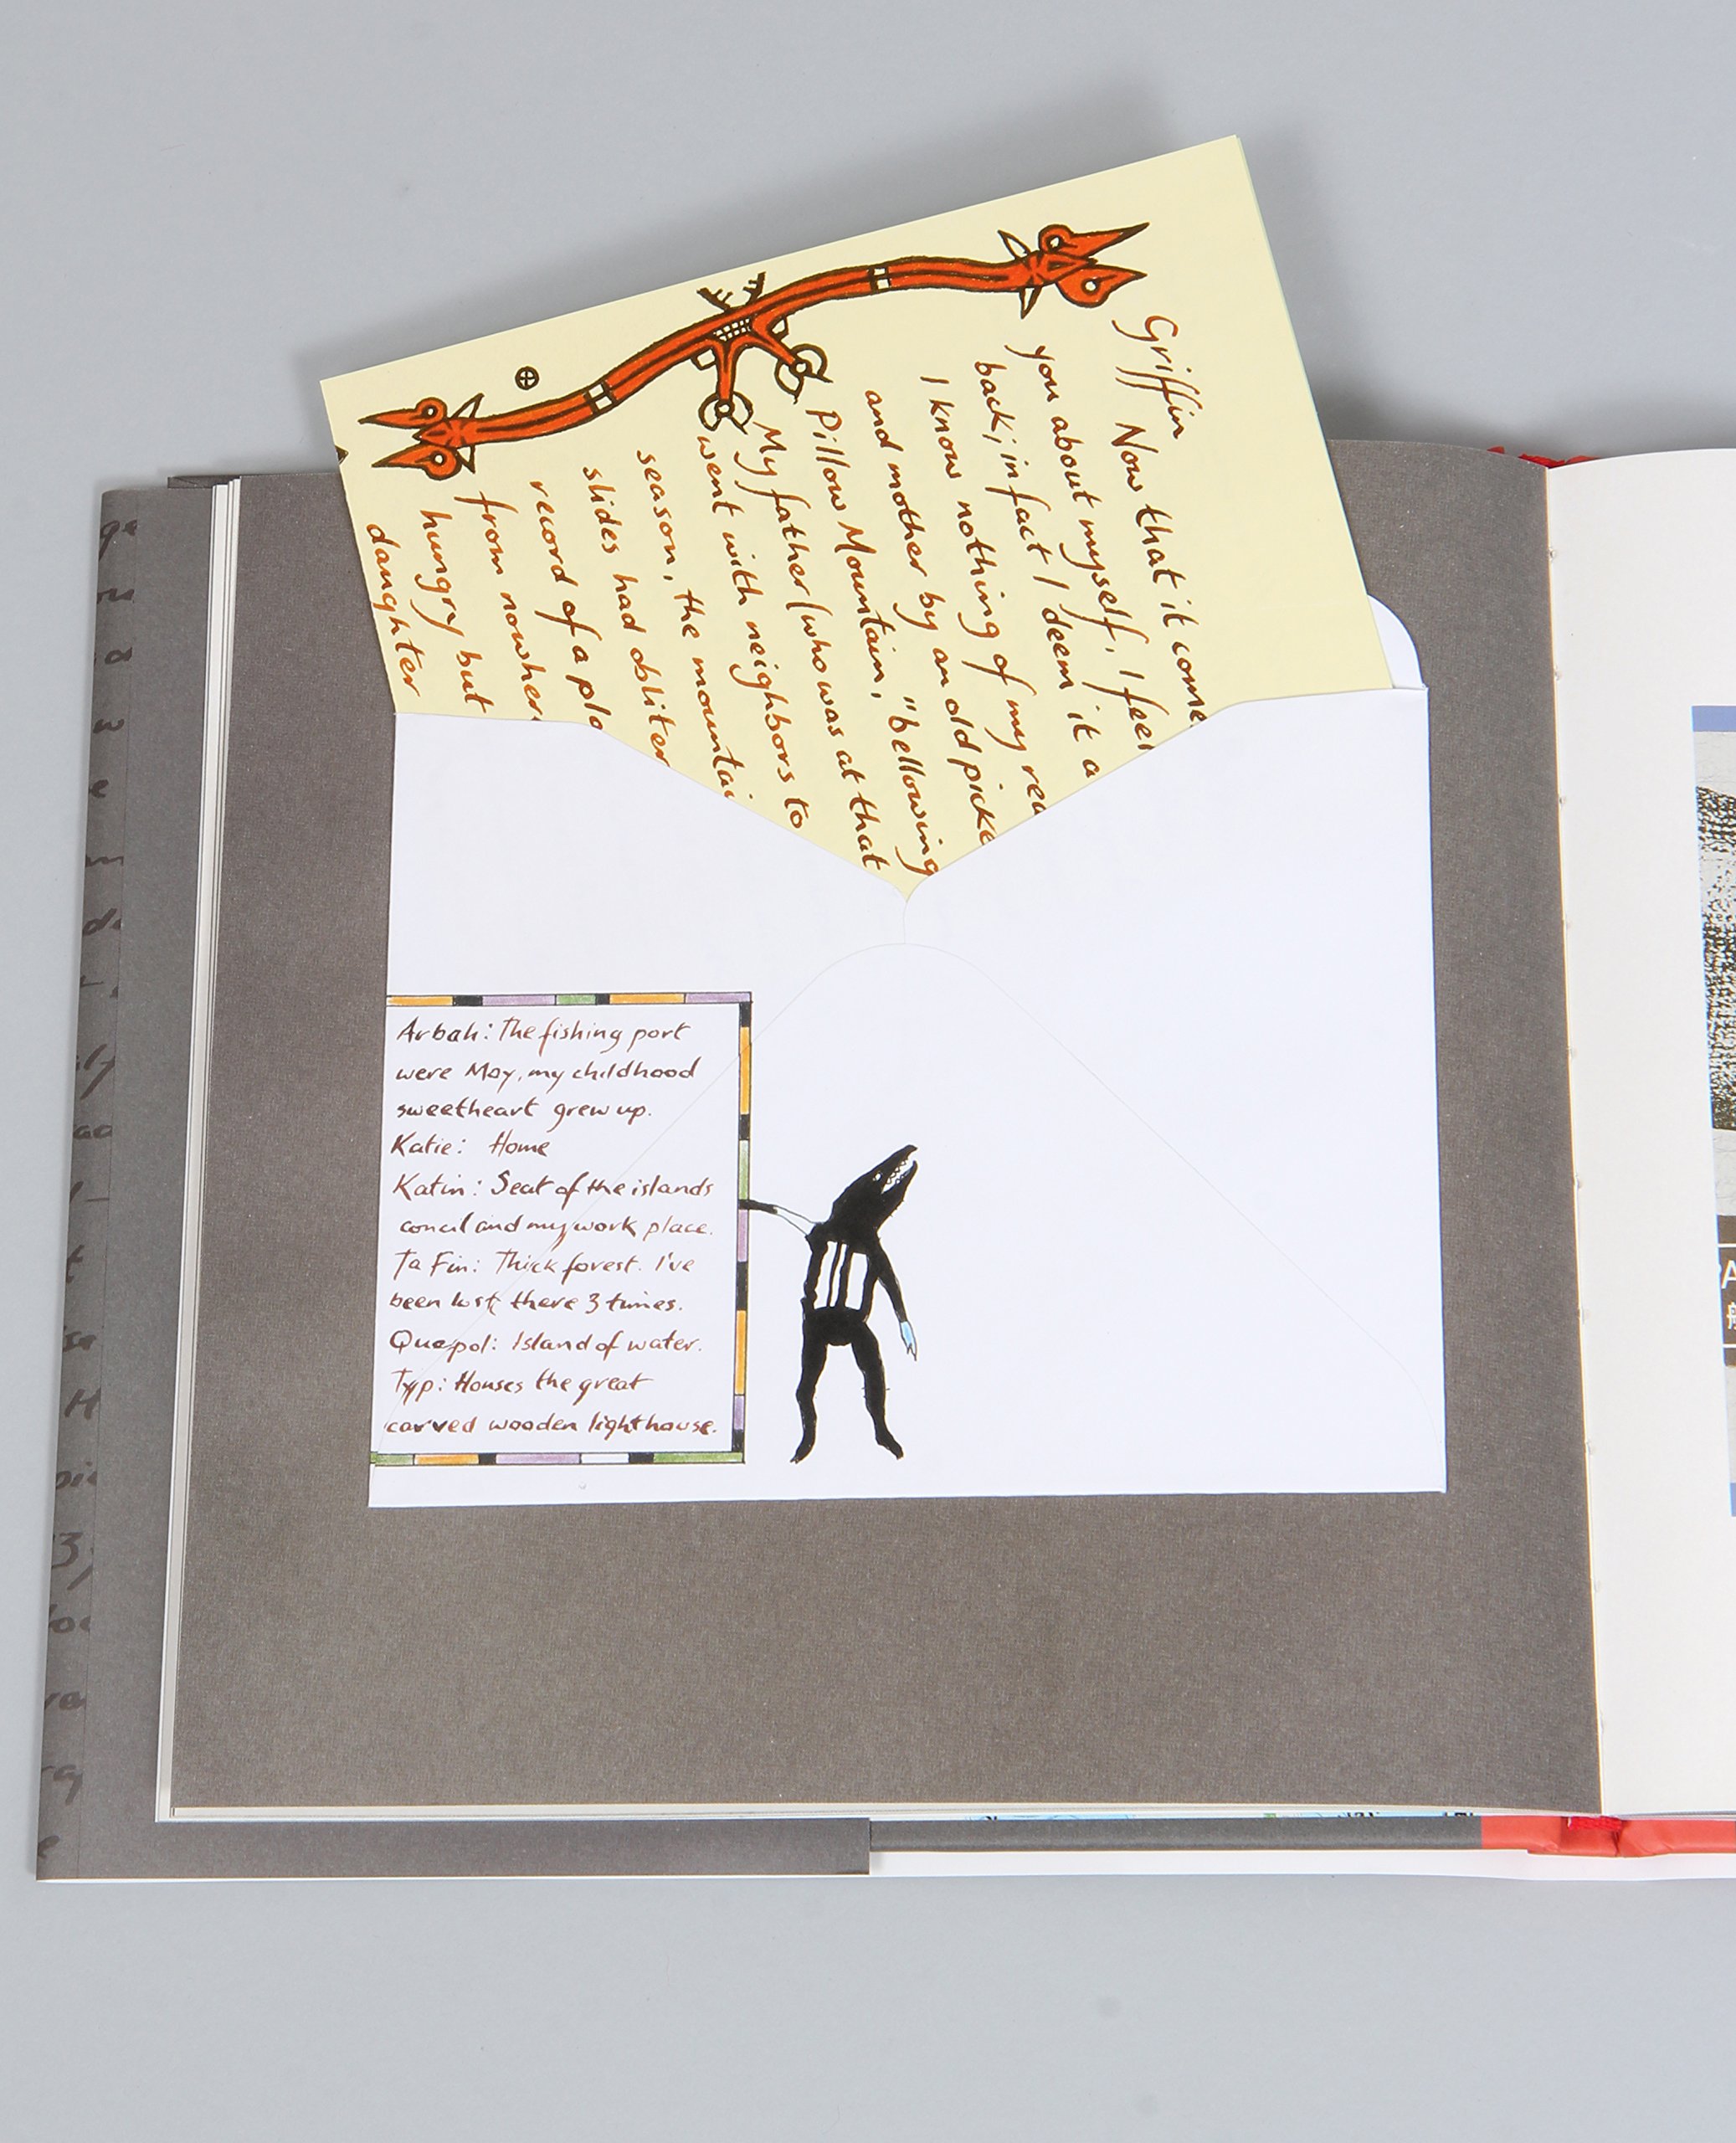 Griffin
Now that it come
you about myself, I feel
back; in fact I deem it a
I know nothing of my rea
and mother by an old picke
Pillow Mountain, "bellowing
My father (who was at that
went with neighbors to
season, the mountai
slides had obliter
record of a pla
from nowher
hungry but
daughter
Arbah: The fishing port
were May, my childhood
sweetheart grew up.
Katie: Home
Katin: Seat of the islands
concil and my work place.
Ta Fin: Thick forest. I've
been lost there 3 times.
Quepol: Island of water.
Typ: Houses the great
carved wooden lighthouse.